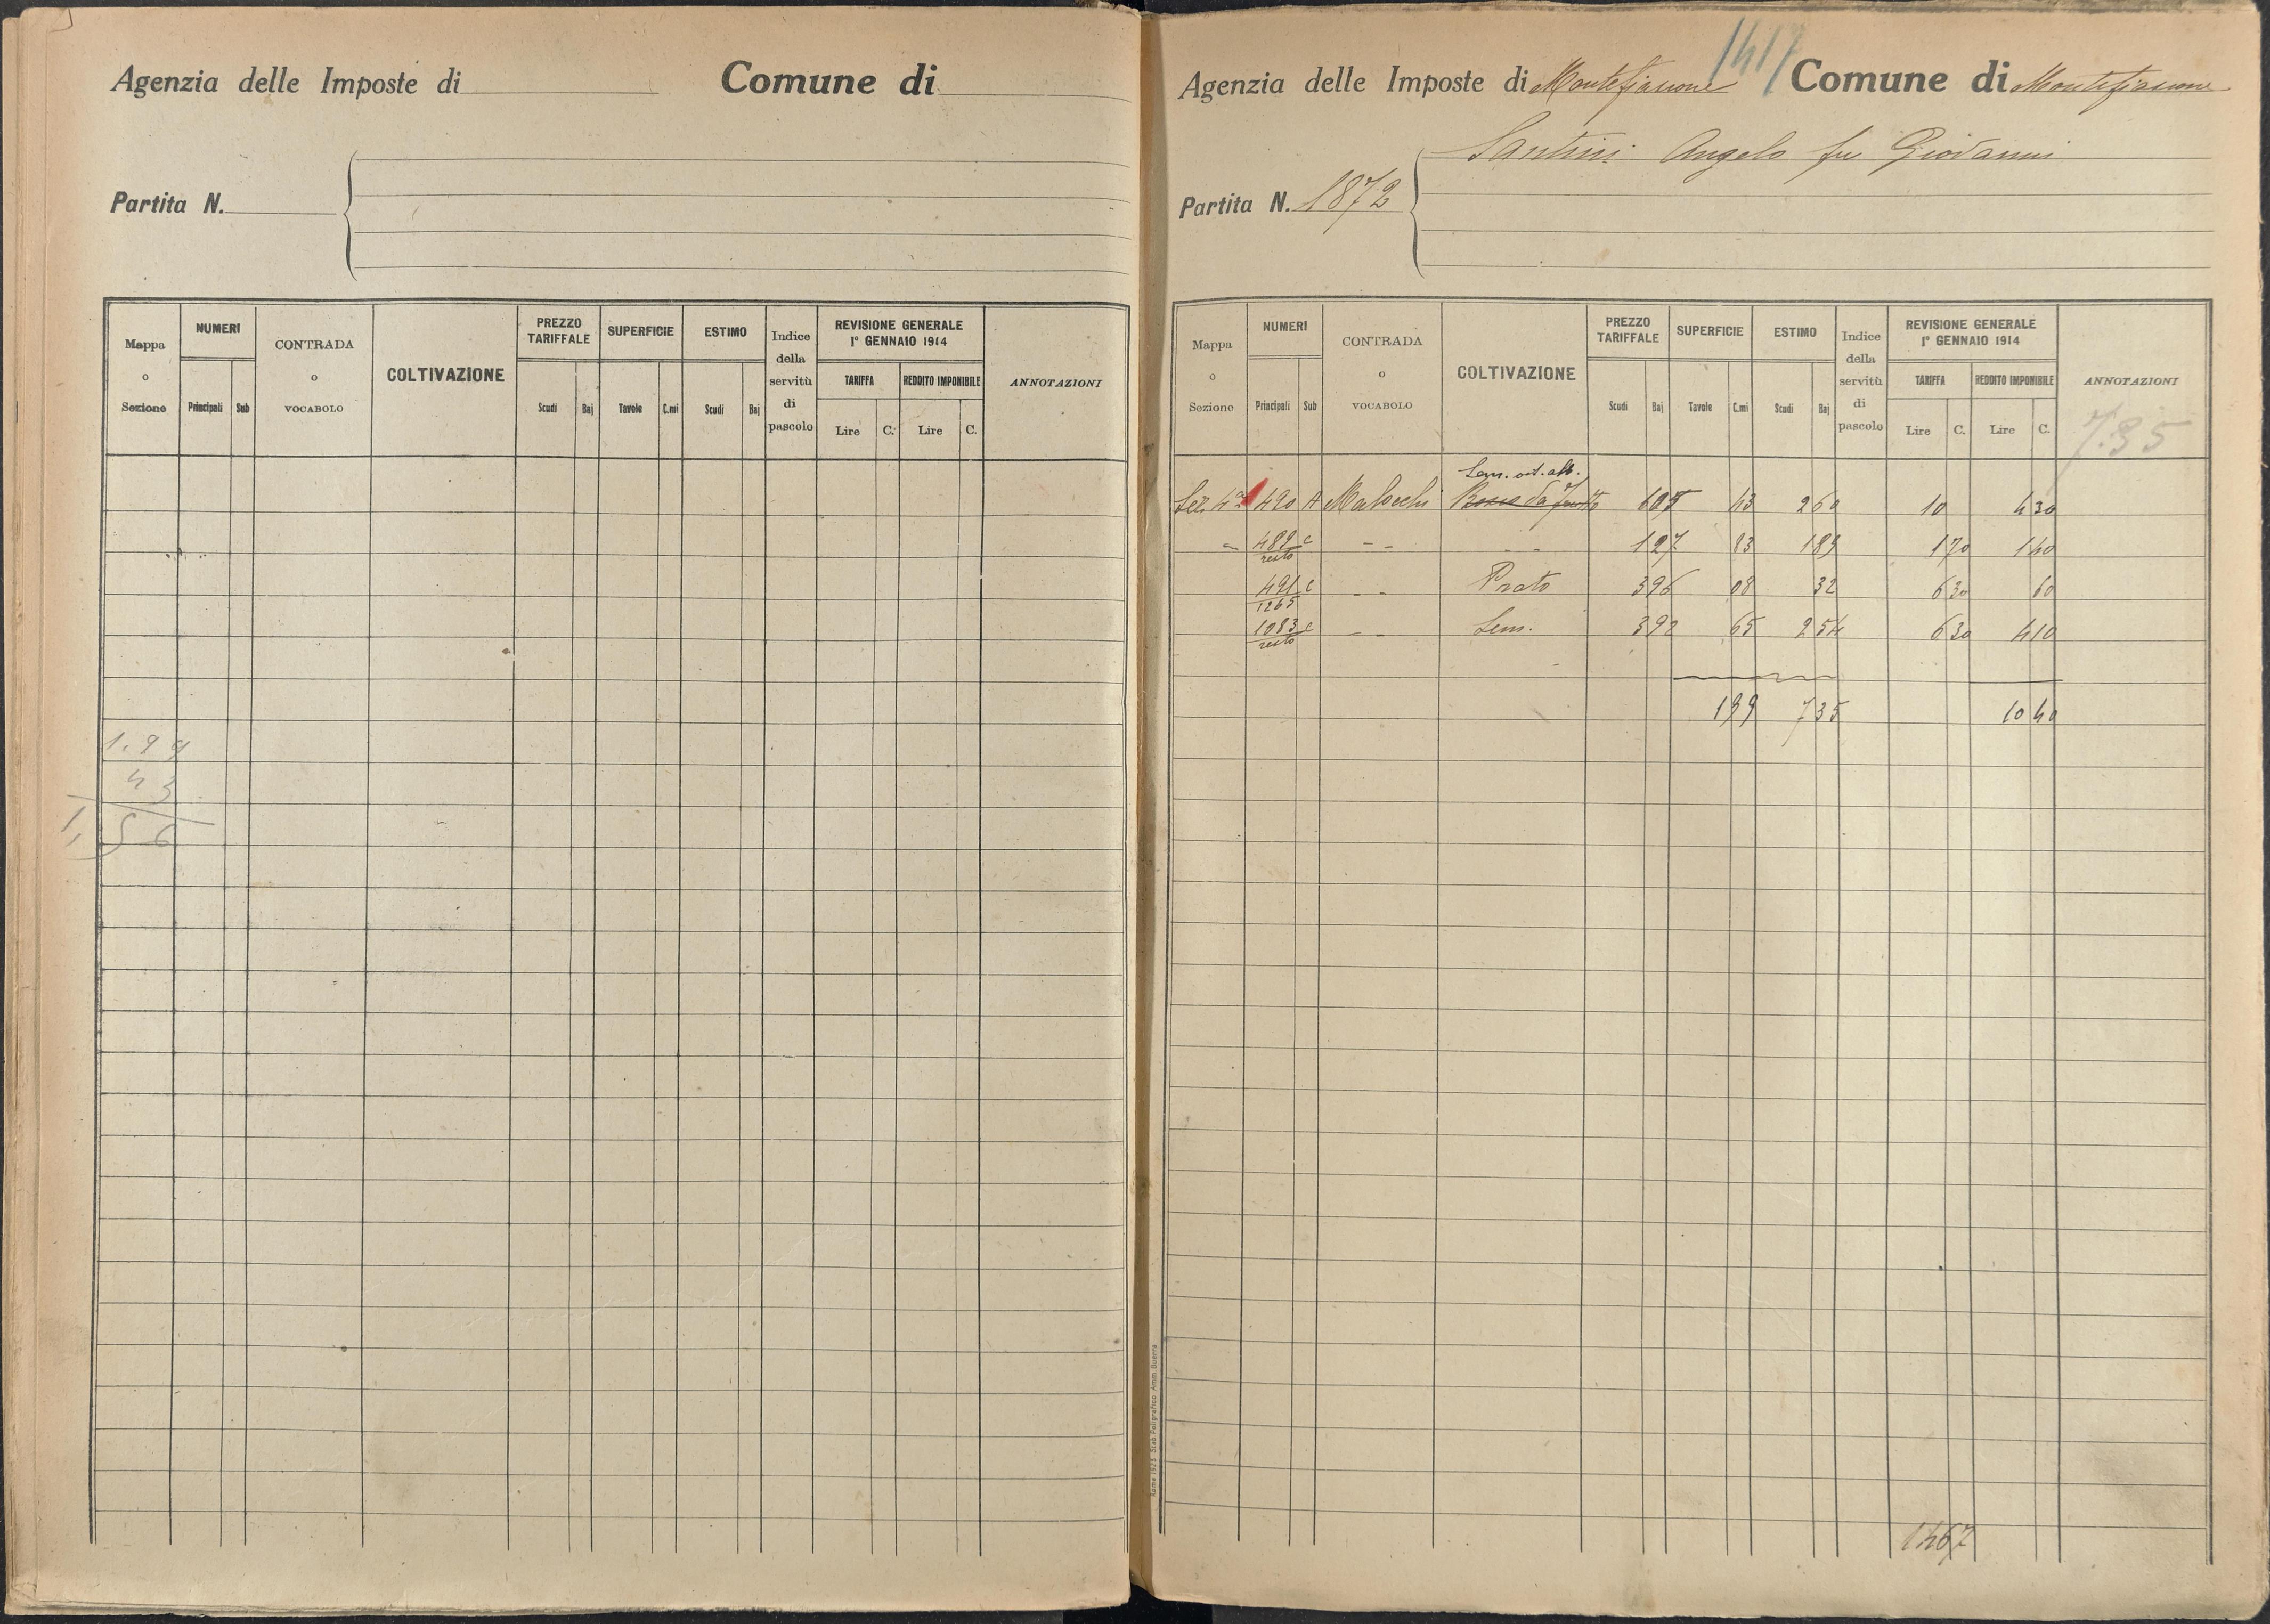 Agenzia delle Imposte di Comune di
Partita N.
Mappa o Sezione NUMERI Principali Sub CONTRADA o VOCABOLO COLTIVAZIONE PREZZO TARIFFALE Scudi Baj SUPERFICIE Tavole C.mi ESTIMO Scudi Baj Indice della servitù di pascolo REVISIONE GENERALE 1° GENNAIO 1914 TARIFFA Lire C. REDDITO IMPONIBILE Lire C. ANNOTAZIONI
1.99
43
1,56
1417
Agenzia delle Imposte di Montefiascone Comune di Montefiascone
Santini Angelo fu Giovanni
Partita N. 1872
Mappa o Sezione NUMERI Principali Sub CONTRADA o VOCABOLO COLTIVAZIONE PREZZO TARIFFALE Scudi Baj SUPERFICIE Tavole C.mi ESTIMO Scudi Baj Indice della servitù di pascolo REVISIONE GENERALE 1° GENNAIO 1914 TARIFFA Lire C. REDDITO IMPONIBILE Lire C. ANNOTAZIONI
7.35
Sem.
Sez. 4a 490 A da frutto 605 43 260 10 430
" 489 c resto - - - - 127 83 189 170 140
491 c 1265 - - Prato 396 08 32 630 60
1083 c resto - - Sem. 392 65 254 630 410
199 735 1040
1467
Roma 1925 Stab. Poligrafico Amm. Guerra